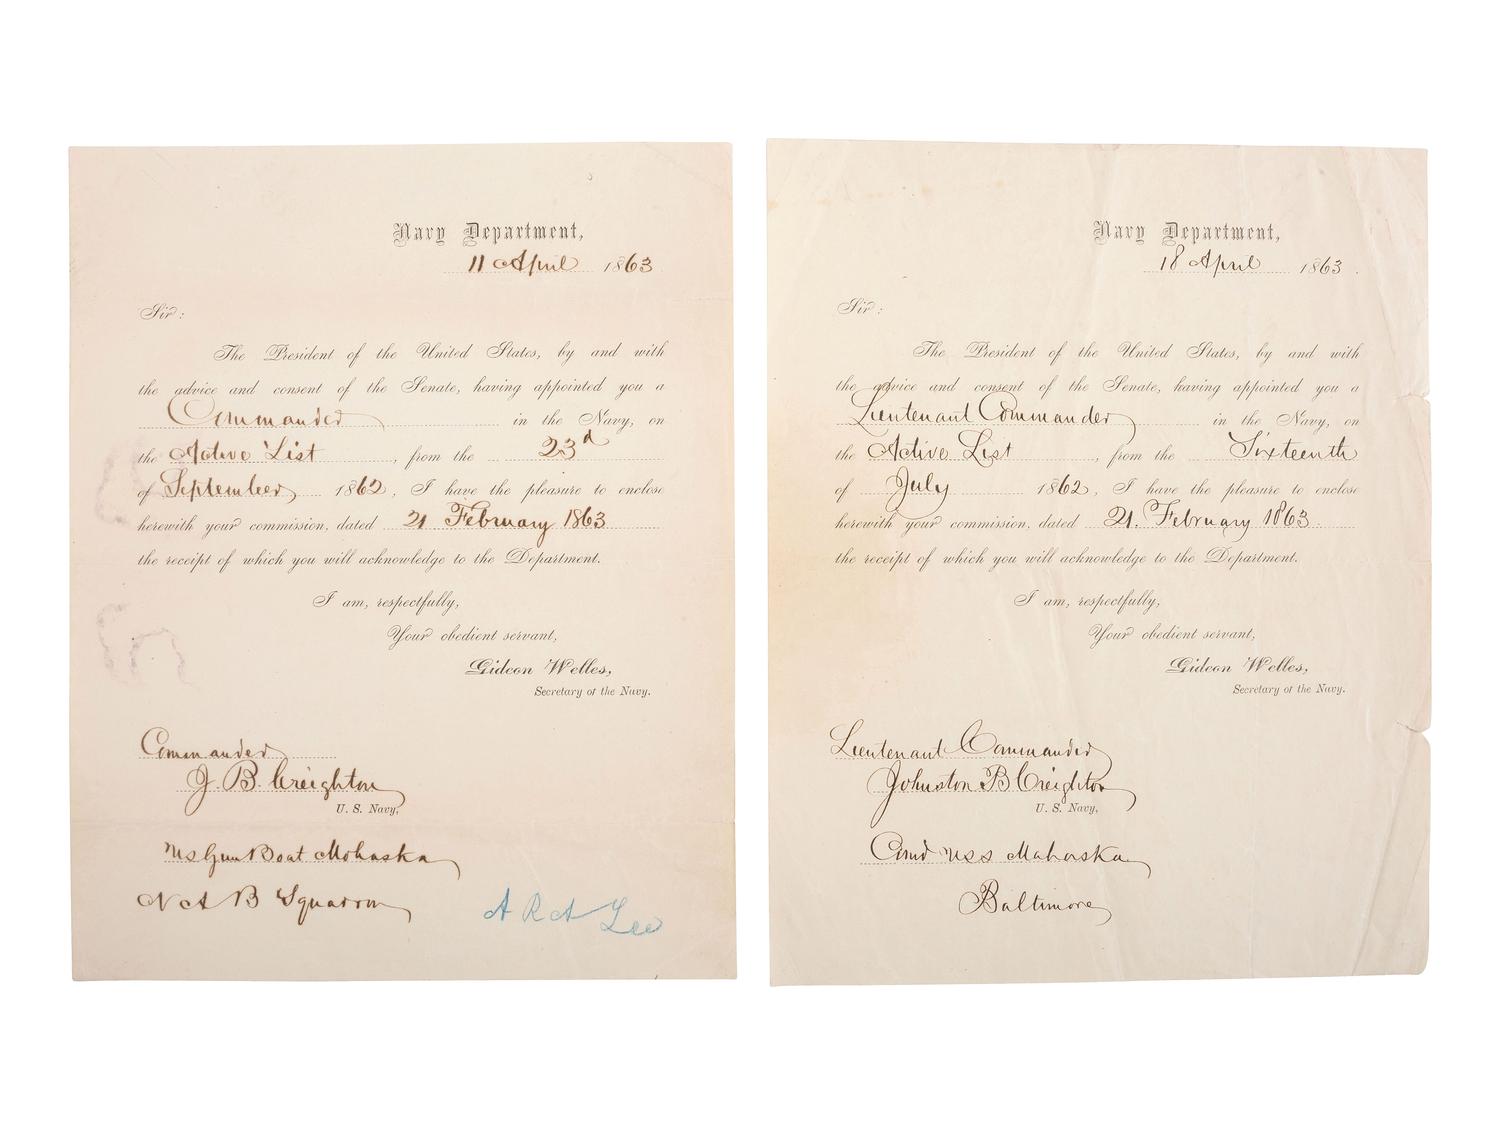 Navy Department,
11 April 1863
Sir:
The President of the United States, by and with
the advice and consent of the Senate, having appointed you a
Commander in the Navy, on
the Active List, from the 23d
of September 1862, I have the pleasure to enclose
herewith your commission, dated 21 February 1863
the receipt of which you will acknowledge to the Department.
I am, respectfully,
Your obedient servant,
Gideon Welles,
Secretary of the Navy.
Commander
J. B. Creighton
U. S. Navy,
Gun Boat Mahaska
N A B Squadron
A R A Lee
Navy Department,
18 April 1863.
Sir:
The President of the United States, by and with
the advice and consent of the Senate, having appointed you a
Lieutenant Commander in the Navy, on
the Active List, from the Sixteenth
of July 1862, I have the pleasure to enclose
herewith your commission, dated 21. February 1863.
the receipt of which you will acknowledge to the Department.
I am, respectfully,
Your obedient servant,
Gideon Welles,
Secretary of the Navy.
Lieutenant Commander
Johnston B Creighton
U. S. Navy,
Comd USS Mahaska
Baltimore